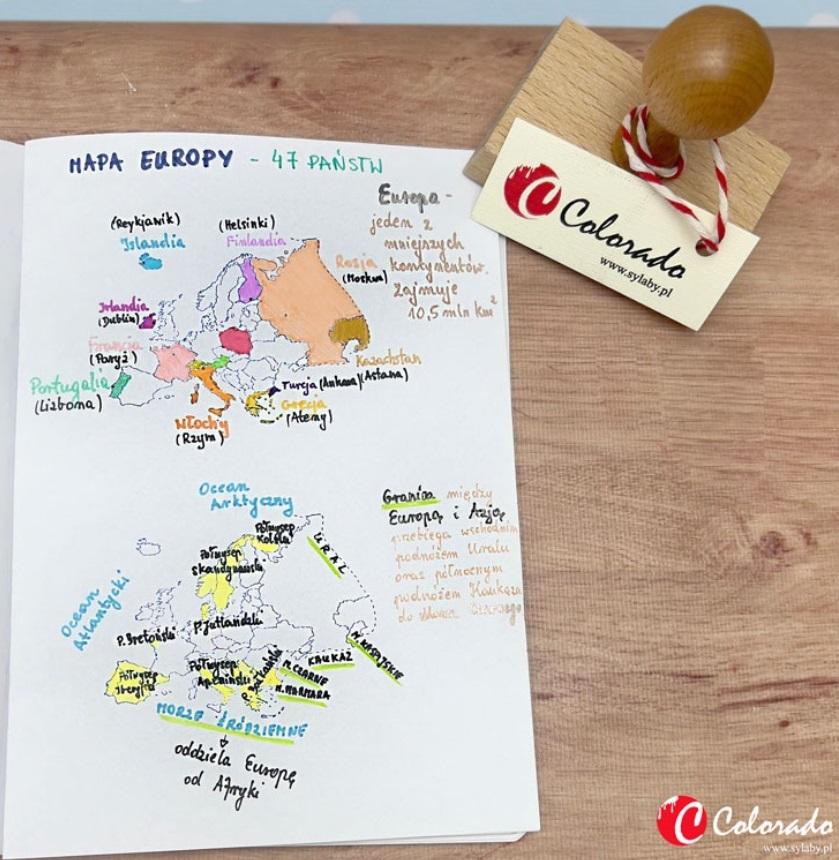 MAPA EUROPY - 47 PAŃSTW
Europa -
jeden z
mniejszych
kontynentów.
Zajmuje
10,5 mln km²
(Reykjawik)
Islandia
(Helsinki)
Finlandia
Rosja
(Moskwa)
Irlandia
(Dublin)
Francja
(Paryż)
Portugalia
(Lizbona)
Włochy
(Rzym)
Kazachstan
(Astana)
Turcja (Ankara)
Grecja
(Ateny)
Ocean
Arktyczny
Ocean
Atlantycki
Półwysep
Kolski
Półwysep
Skandynawski
URAL
P. Jutlandzki
P. Bretoński
Półwysep
Iberyjski
Półwysep
Apeniński
P. Bałkański
KAUKAZ
M. KASPIJSKIE
M. CZARNE
M. MARMARA
MORZE ŚRÓDZIEMNE
oddziela Europę
od Afryki
Granica między
Europą i Azją
przebiega wschodnim
podnóżem Uralu
oraz północnym
podnóżem Kaukazu
do
Colorado
www.sylaby.pl
Colorado
www.sylaby.pl